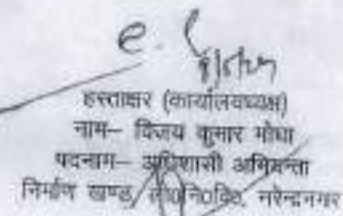 हस्ताक्षर (कार्यालयध्यक्ष)
नाम– विजय कुमार मोघा
पदनाम– अधिशासी अभियन्ता
निर्माण खण्ड, लो०नि०वि०, नरेन्द्रनगर